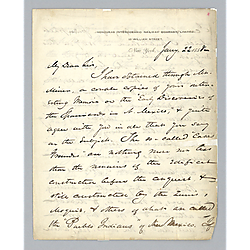 New York,
My Dear Sir,
I have obtained through Mr.
a copy of your
esting Memoir on the Early Discoveries of
the Spaniards in N. Mexico, & quite
agree with you in all that you say
on the subject. The so-called Casas
Grandes are nothing more nor less
than the remains of the edifices
construction before the conquest &
still construction by the Zunis,
Moquis & others of what are called
the Pueblo Indians of New Mexico.